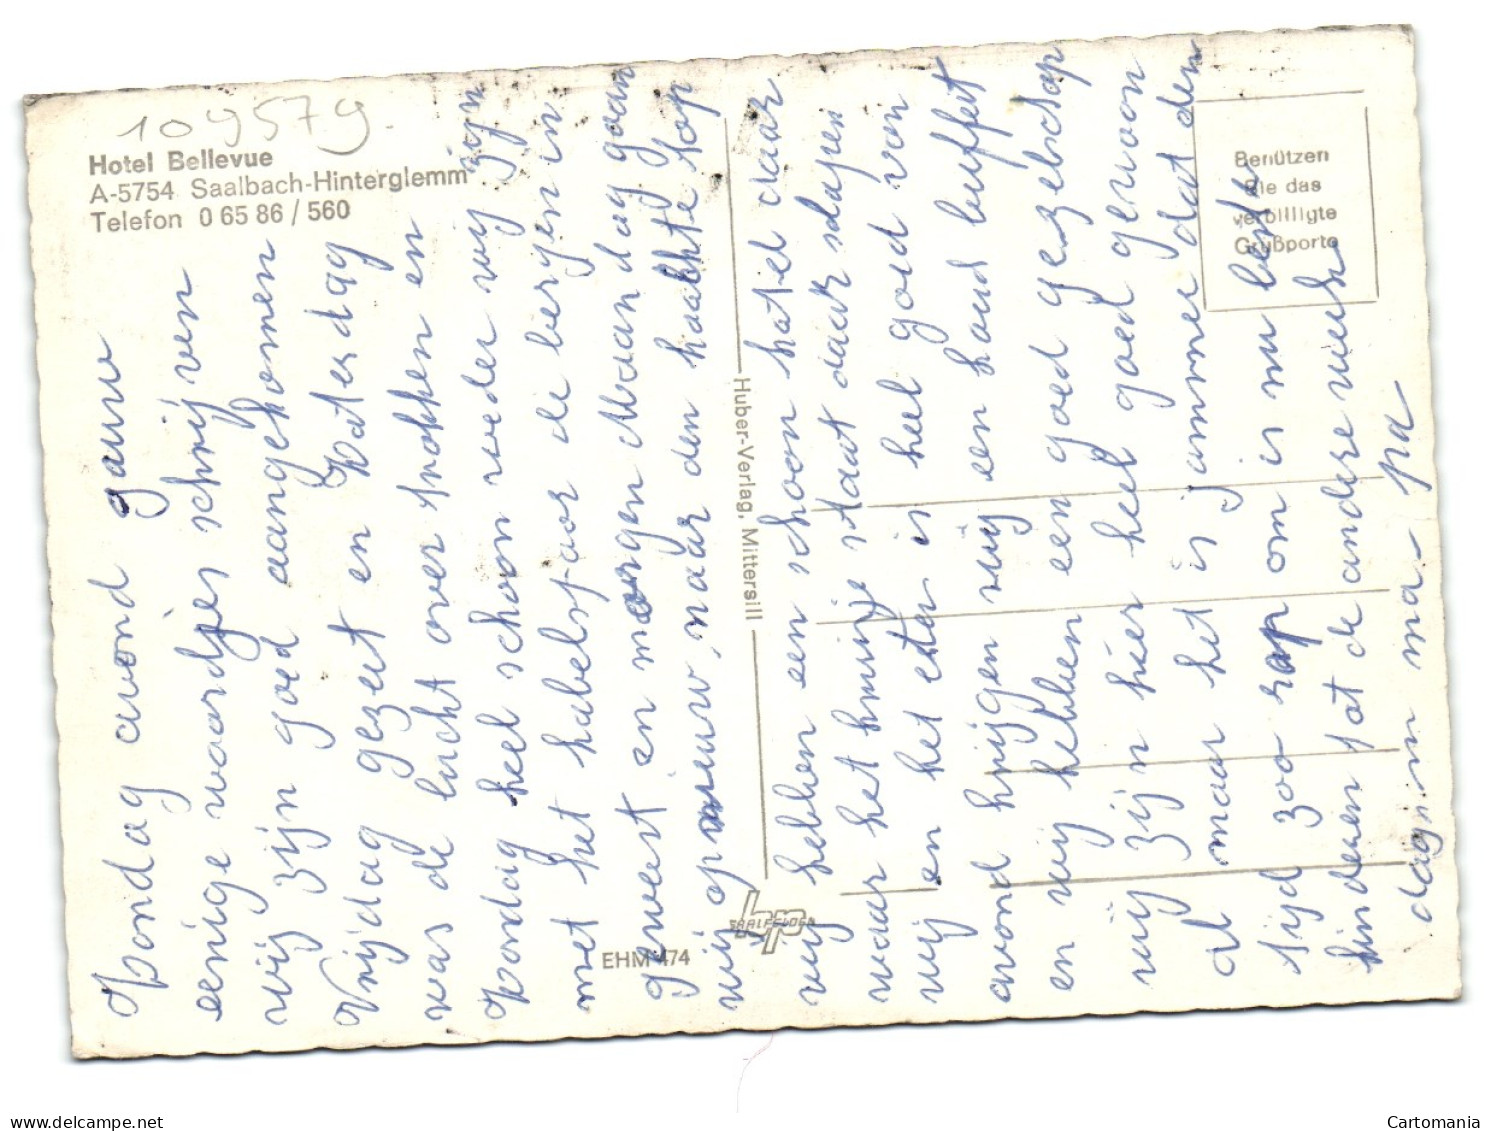 109579.
Hotel Bellevue
A-5754 Saalbach-Hinterglemm
Telefon 0 65 86 / 560
Benützen
Sie das
verbilligte
Grußporto
Huber-Verlag, Mittersill
SAALFELDEN
hp
EHM 474
Zondag avond gauw
eenige woordjes schrijven
wij zijn goed aangekomen
Vrijdag gezeet en Zaterdag
was de lucht over trokken en
Zondag heel schoon weder wij zijn
met het kabelsjaor de bergen in
geweest en morgen Maandag gaan
wij opnieuw naar den haachte top
wij hebben een schoon hotel daar
waar het kruisje staat daar slapen
wij en het eten is heel goed van
avond krijgen wij een koud buffet
en wij hebben een goed gezelschap
wij zijn hier heel goed gewoon
al maar het is jammer dat den
tijd zoo rap om is nu lenke
kinderen tot de andere week
dag in ma - pa
netteshop
Cartomania